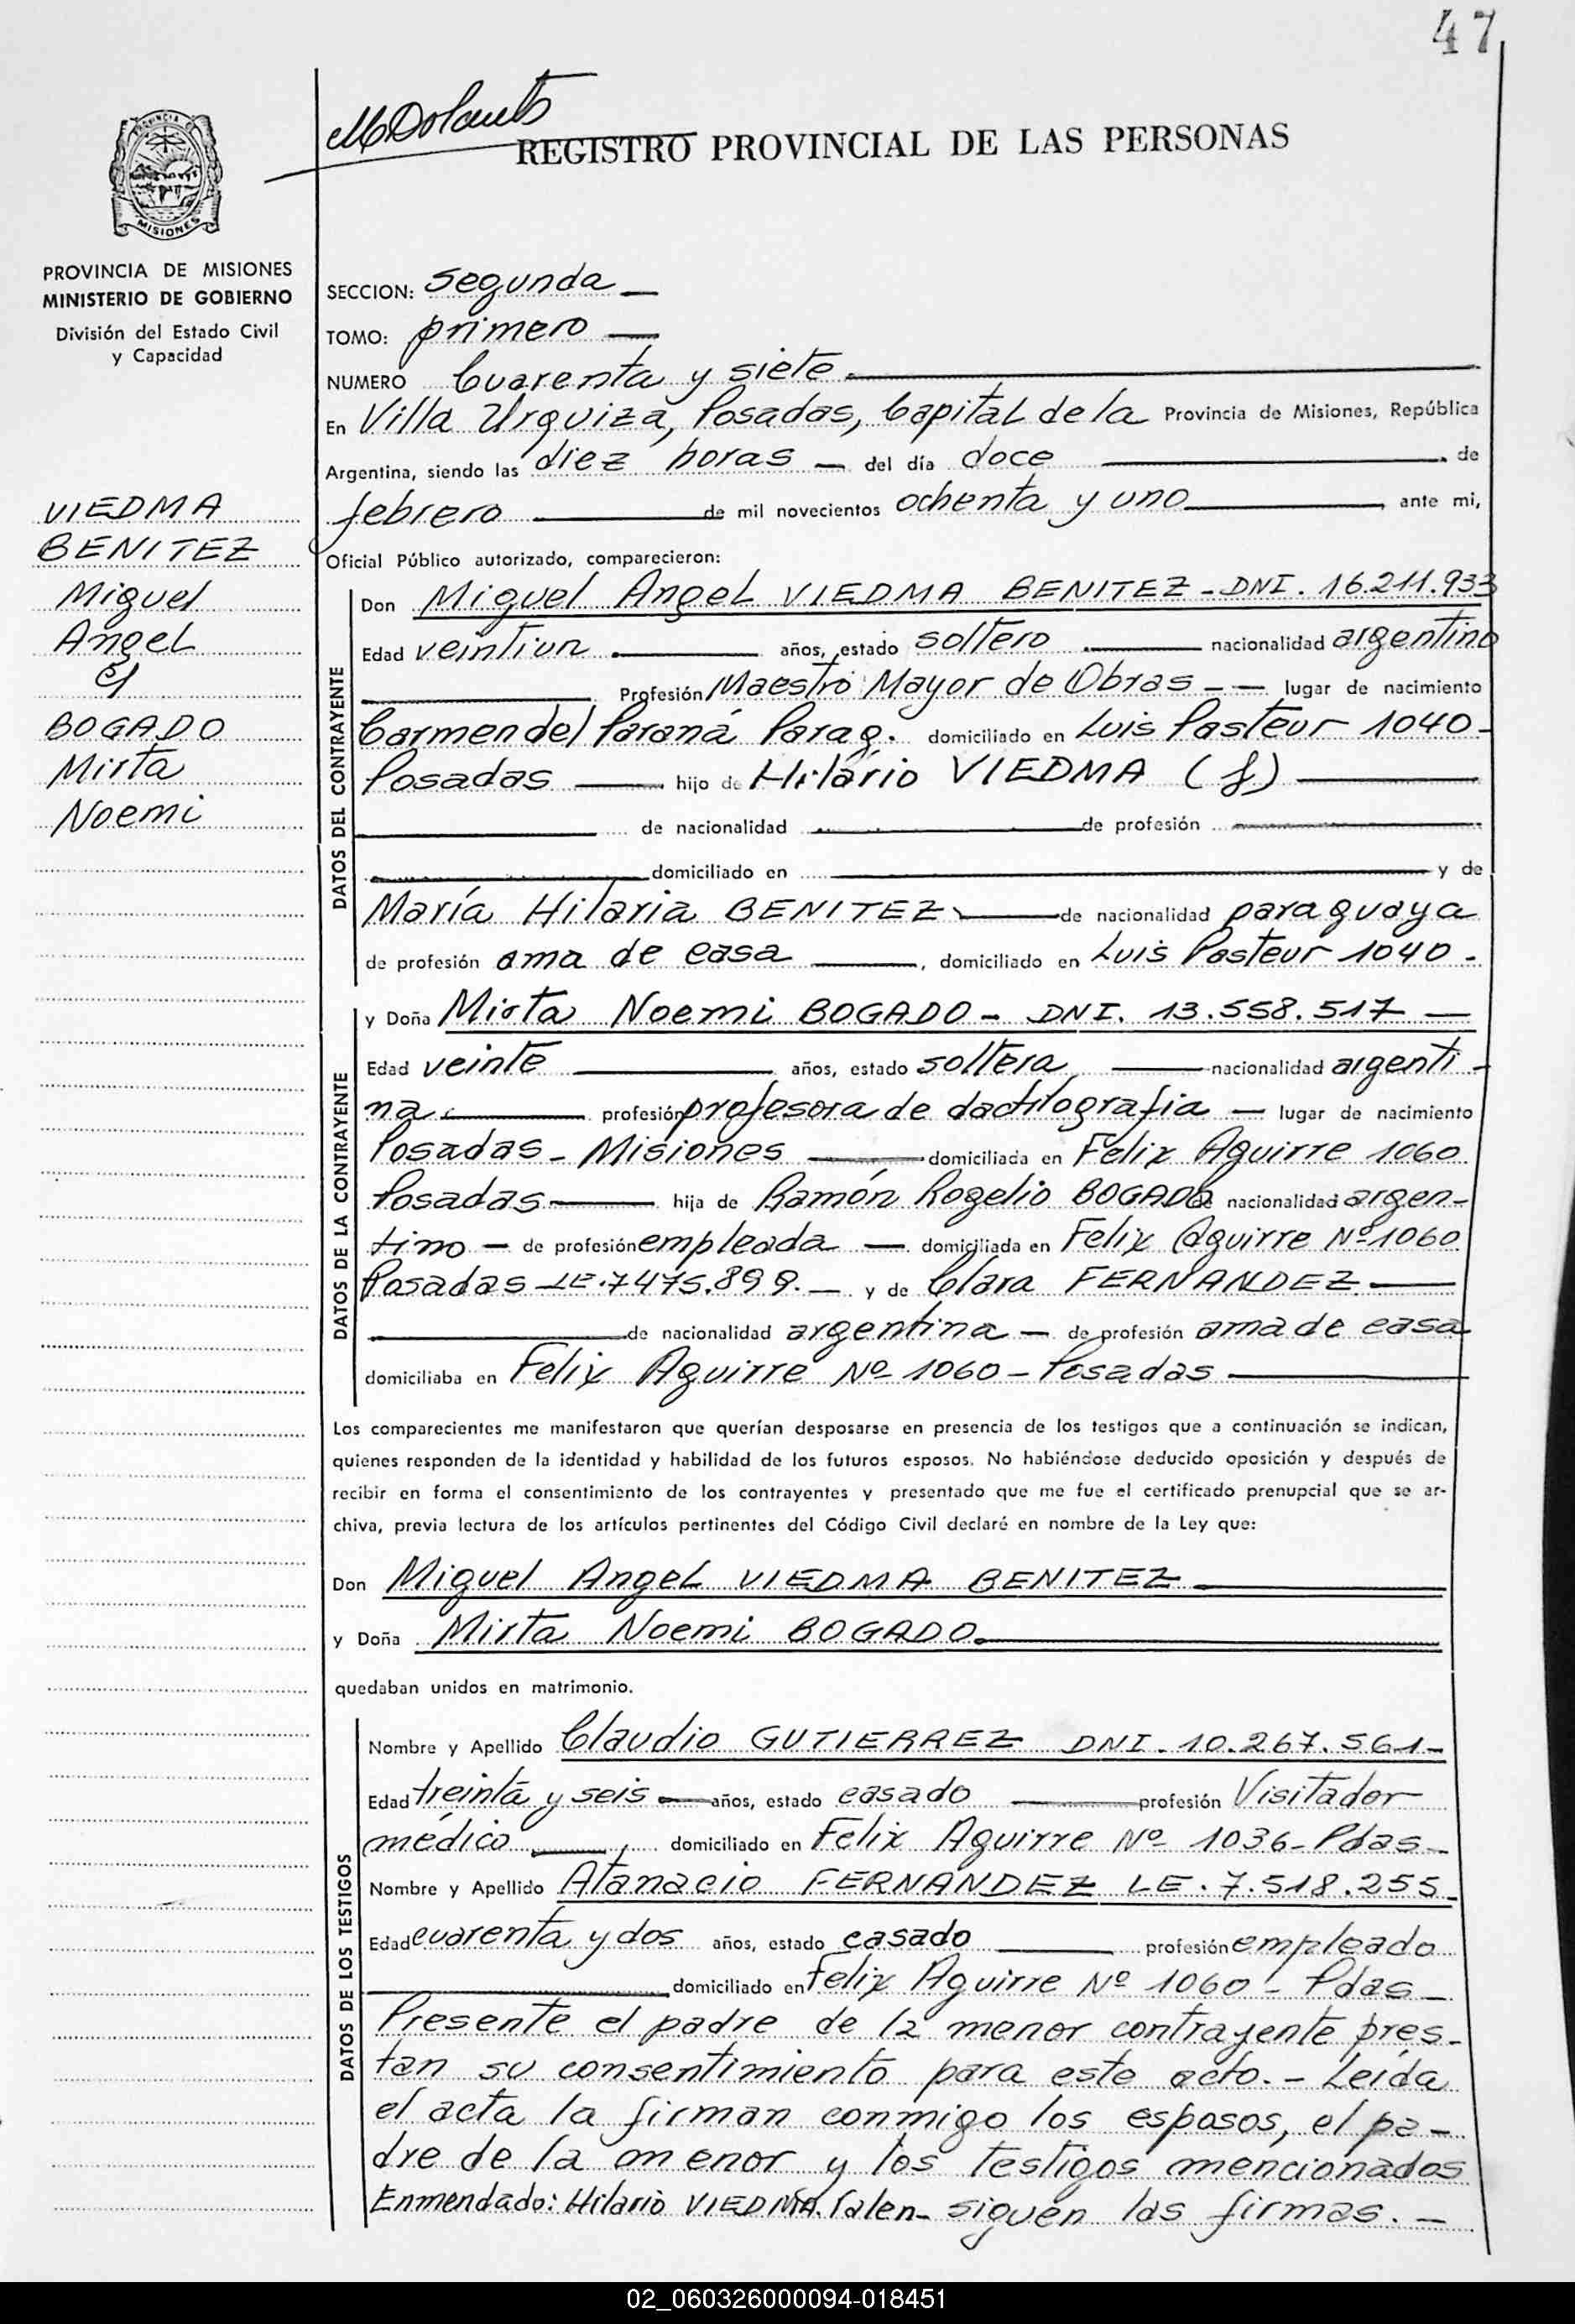 47
REGISTRO PROVINCIAL DE LAS PERSONAS
PROVINCIA DE MISIONES
MINISTERIO DE GOBIERNO
División del Estado Civil
y Capacidad
VIEDMA
BENITEZ
Miguel
Angel
y
BOGADO
Mirta
Noemi
SECCION: Segunda
TOMO: primero
NUMERO Cuarenta y siete
En Villa Urquiza, Posadas, Capital de la Provincia de Misiones, República
Argentina, siendo las diez horas – del día doce de
febrero de mil novecientos ochenta y uno ante mi,
Oficial Público autorizado, comparecieron:
DATOS DEL CONTRAYENTE
Don Miguel Angel VIEDMA BENITEZ - DNI. 16.211.933
Edad veintiun años, estado soltero nacionalidad argentino
Profesión Maestro Mayor de Obras - - lugar de nacimiento
Carmen del Paraná Parag. domiciliado en Luis Pasteur 1040-
Posadas hijo de Hilario VIEDMA (f)
de nacionalidad de profesión
domiciliado en y de
María Hilaria BENITEZ de nacionalidad paraguaya
de profesión ama de casa , domiciliado en Luis Pasteur 1040 -
DATOS DE LA CONTRAYENTE
y Doña Mirta Noemi BOGADO - DNI. 13.558.517 –
Edad veinte años, estado soltera nacionalidad argenti-
na profesión profesora de dactilografia – lugar de nacimiento
Posadas - Misiones domiciliada en Felix Aguirre 1060
Posadas hija de Ramón Rogelio BOGADO de nacionalidad argen-
tino – de profesión empleada – domiciliada en Felix Aguirre Nº 1060
Posadas LE. 7475.899. – y de Clara FERNANDEZ
de nacionalidad argentina – de profesión ama de casa
domiciliaba en Felix Aguirre Nº 1060 - Posadas
Los comparecientes me manifestaron que querían desposarse en presencia de los testigos que a continuación se indican,
quienes responden de la identidad y habilidad de los futuros esposos. No habiéndose deducido oposición y después de
recibir en forma el consentimiento de los contrayentes y presentado que me fue el certificado prenupcial que se ar-
chiva, previa lectura de los artículos pertinentes del Código Civil declaré en nombre de la Ley que:
Don Miguel Angel VIEDMA BENITEZ
y Doña Mirta Noemi BOGADO
quedaban unidos en matrimonio.
DATOS DE LOS TESTIGOS
Nombre y Apellido Claudio GUTIERREZ DNI. 10.267.561-
Edad treinta y seis años, estado casado profesión Visitador
médico domiciliado en Felix Aguirre Nº 1036 - Pdas-
Nombre y Apellido Atanacio FERNANDEZ LE. 7.518.255
Edad cuarenta y dos años, estado casado profesión empleado
domiciliado en Felix Aguirre Nº 1060 - Pdas-
Presente el padre de la menor contrayente pres-
tan su consentimiento para este acto. - Leída
el acta la firman conmigo los esposos, el pa-
dre de la menor y los testigos mencionados
Enmendado: Hilario VIEDMA. Valen- siguen las firmas. –
02_060326000094-018451